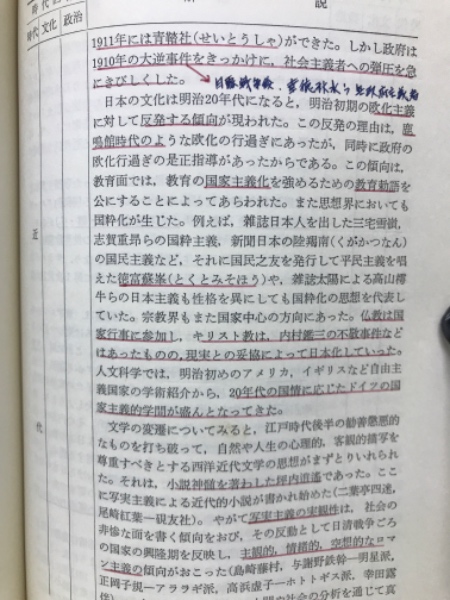 時代 文化 政治
説
1911年には青鞜社(せいとうしゃ)ができた。しかし政府は
1910年の大逆事件をきっかけに，社会主義者への弾圧を急
にきびしくした。
日本の文化は明治20年代になると，明治初期の欧化主義
に対して反発する傾向が現われた。この反発の理由は，鹿
鳴館時代のような欧化の行過ぎにあったが，同時に政府の
欧化行過ぎの是正指導があったからである。この傾向は，
教育面では，教育の国家主義化を強めるための教育勅語を
公にすることによってあらわれた。また思想界においても
国粋化が生じた。例えば，雑誌日本人を出した三宅雪嶺，
志賀重昂らの国粋主義，新聞日本の陸羯南(くがかつなん)
の国民主義など，それに国民之友を発行して平民主義を唱
えた徳富蘇峯(とくとみそほう)や，雑誌太陽による高山樗
牛らの日本主義も性格を異にしても国粋化の思想を代表し
ていた。宗教界もまた国家中心の方向にあった。仏教は国
家行事に参加し，キリスト教は，内村鑑三の不敬事件など
はあったものの，現実との妥協によって日本化していった。
人文科学では，明治初めのアメリカ，イギリスなど自由主
義国家の学術紹介から，20年代の国情に応じたドイツの国
家主義的学問が盛んとなってきた。
文学の変遷についてみると，江戸時代後半の勧善懲悪的
なものを打ち破って，自然や人生の心理的，客観的描写を
尊重すべきとする西洋近代文学の思想がまずとりいれられ
た。それは，小説神髄を著わした坪内逍遙であった。ここ
に写実主義による近代的小説が書かれ始めた(二葉亭四迷，
尾崎紅葉―硯友社)。やがて写実主義の実観性は，社会の
非惨な面を書く傾向をおび，その反動として日清戦争ごろ
の国家の興隆期を反映し，主観的，情緒的，空想的なロマ
ン主義の傾向がおこった(島崎藤村，与謝野鉄幹―明星派，
正岡子規―アララギ派，高浜虚子―ホトトギス派，幸田露
正
代